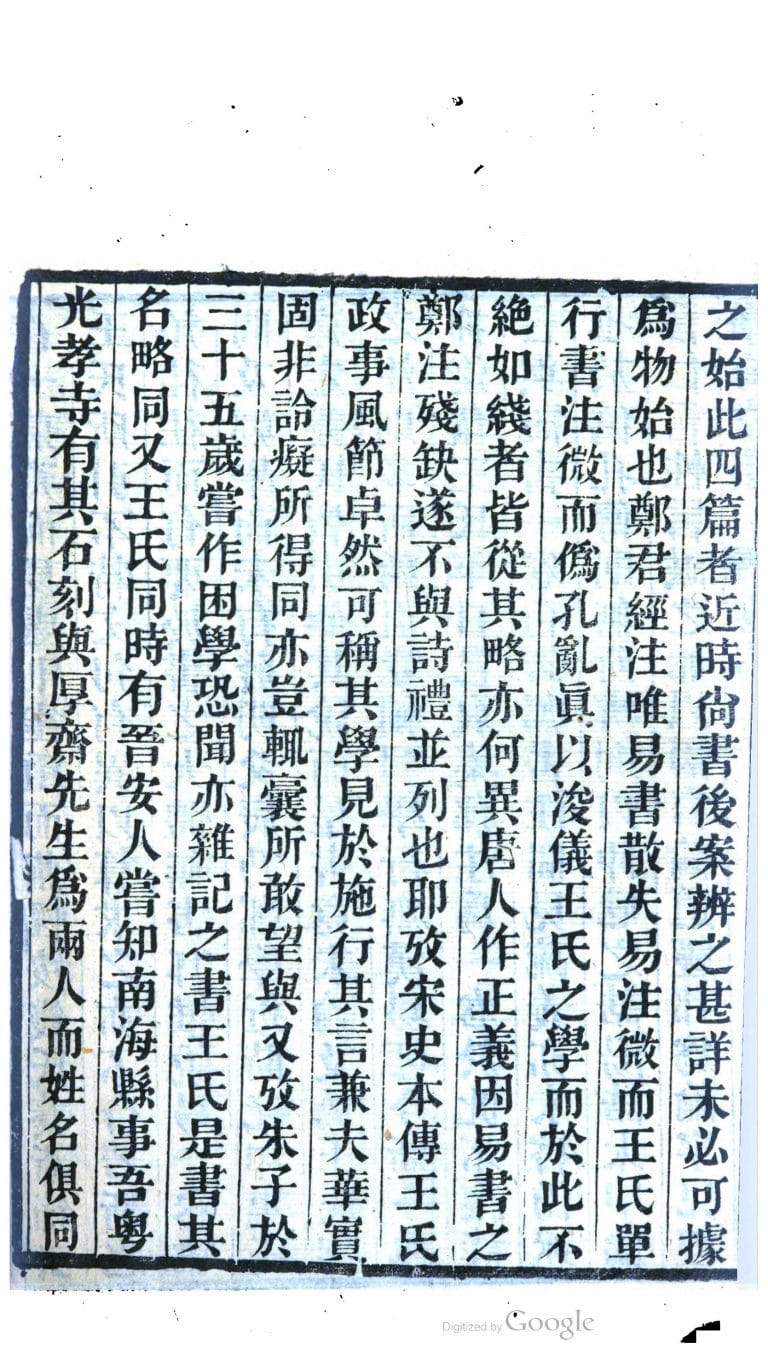 之始此四篇者近時尙書後案辨之甚詳未必可據
爲物始也鄭君經注唯易書散失易注微而王氏單
行書注微而僞孔亂眞以浚儀王氏之學而於此不
絶如綫者皆從其略亦何異唐人作正義因易書之
鄭注殘缺遂不與詩禮並列也耶攷宋史本傳王氏
政事風節卓然可稱其學見於施行其言兼夫華實
固非詅癡所得同亦豈輒囊所敢望與又攷朱子於
三十五歲嘗作困學恐聞亦雜記之書王氏是書其
名略同又王氏同時有晉安人嘗知南海縣事吾粤
光孝寺有其石刻與厚齋先生爲兩人而姓名俱同
Digitized by Google